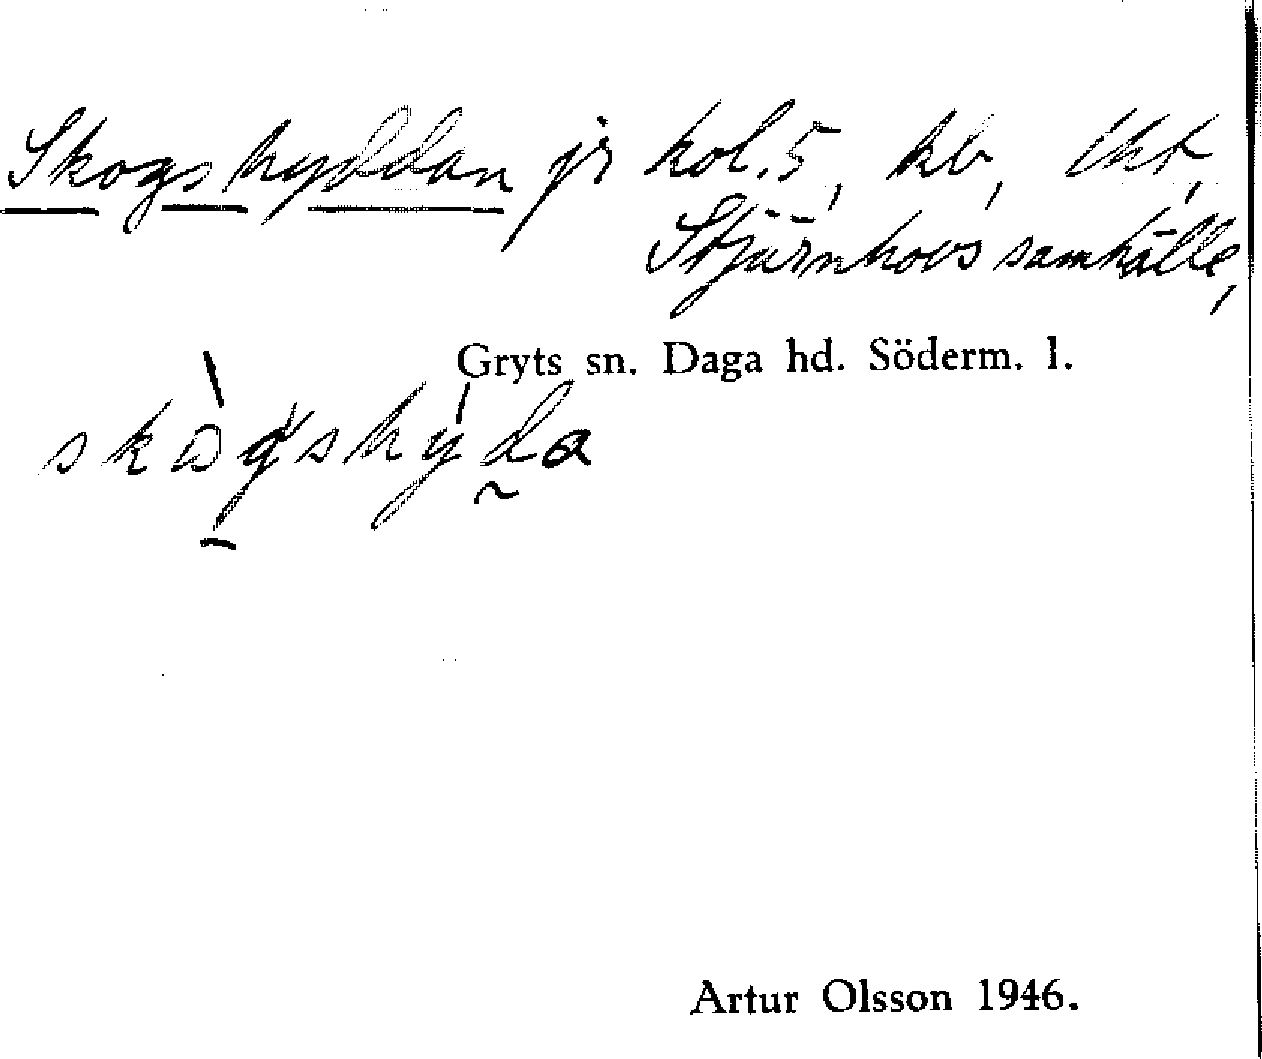 Skogshyddan jr kol. 5, kb,
Stjärnhovs samhälle,
Gryts sn. Daga hd. Söderm. l.
skògshyda
Artur Olsson 1946.